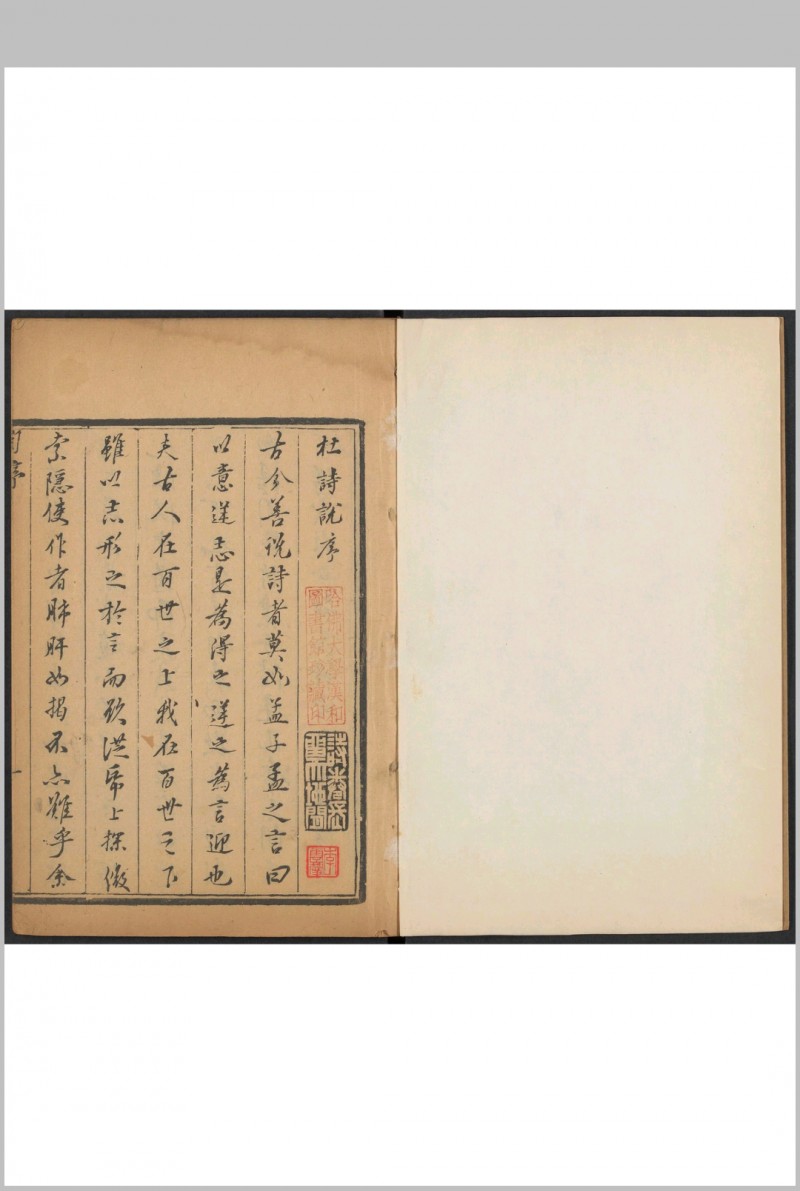 杜詩說序
哈佛大學漢和
圖書館珍藏印
古今善說詩者莫如孟子孟之言曰
以意逆志是為得之逆之為言迎也
夫古人在百世之上我在百世之下
雖以志形之於言而欲從紙上探微
索隱使作者肺肝如揭不亦難乎余